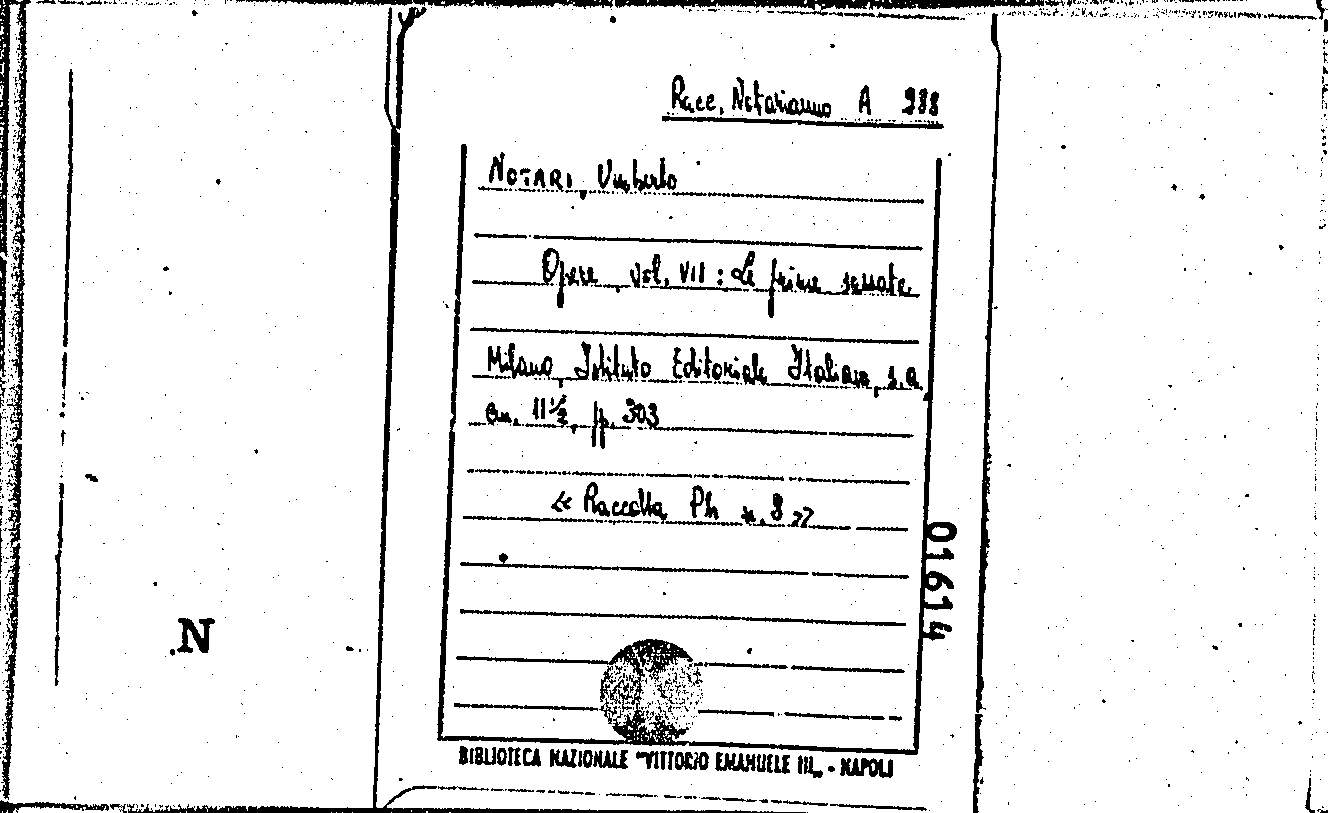 Racc. Notarianno A 988
NOTARI, Umberto
Opere, vol. VII : Le prime serrate
Milano, Istituto Editoriale Italiano, s.a.
cm. 11½, pp. 303
« Raccolta Ph n. 8 »
01614
N
BIBLIOTECA NAZIONALE "VITTORIO EMANUELE III„ - NAPOLI